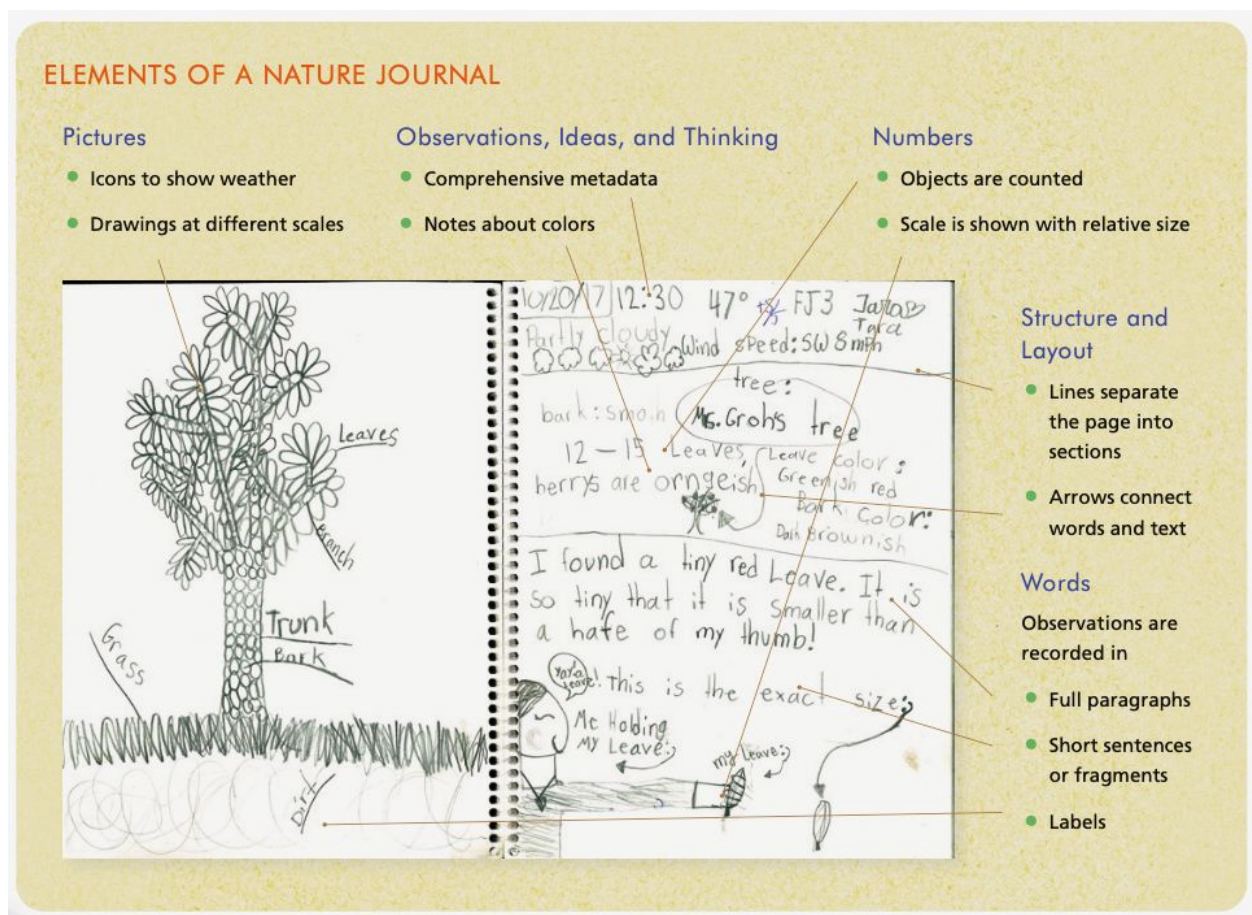 ELEMENTS OF A NATURE JOURNAL
Pictures
Icons to show weather
Drawings at different scales
Observations, Ideas, and Thinking
Comprehensive metadata
Notes about colors
Numbers
Objects are counted
Scale is shown with relative size
Structure and
Layout
Lines separate
the page into
sections
Arrows connect
words and text
Words
Observations are
recorded in
Full paragraphs
Short sentences
or fragments
Labels
Leaves
Branch
Trunk
Bark
Grass
Dirt
10/20/17 12:30 47° FJ3
Tara
Partly cloudy Wind speed: SW 8 mph
tree:
bark: Ms. Groh's tree
12 - 15 Leaves,
berrys are orngeish
Leave color:
Greenish red
Bark color:
Dark Brownish
I found a tiny red Leave. It is
so tiny that it is smaller than
a hafe of my thumb!
This is the exact size:
Me Holding
My Leave:
my Leave: